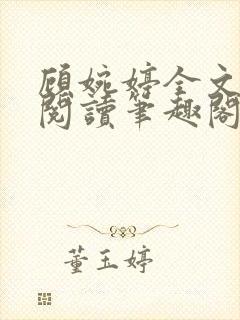 顾婉婷全文
閱讀筆趣閣
董玉婷